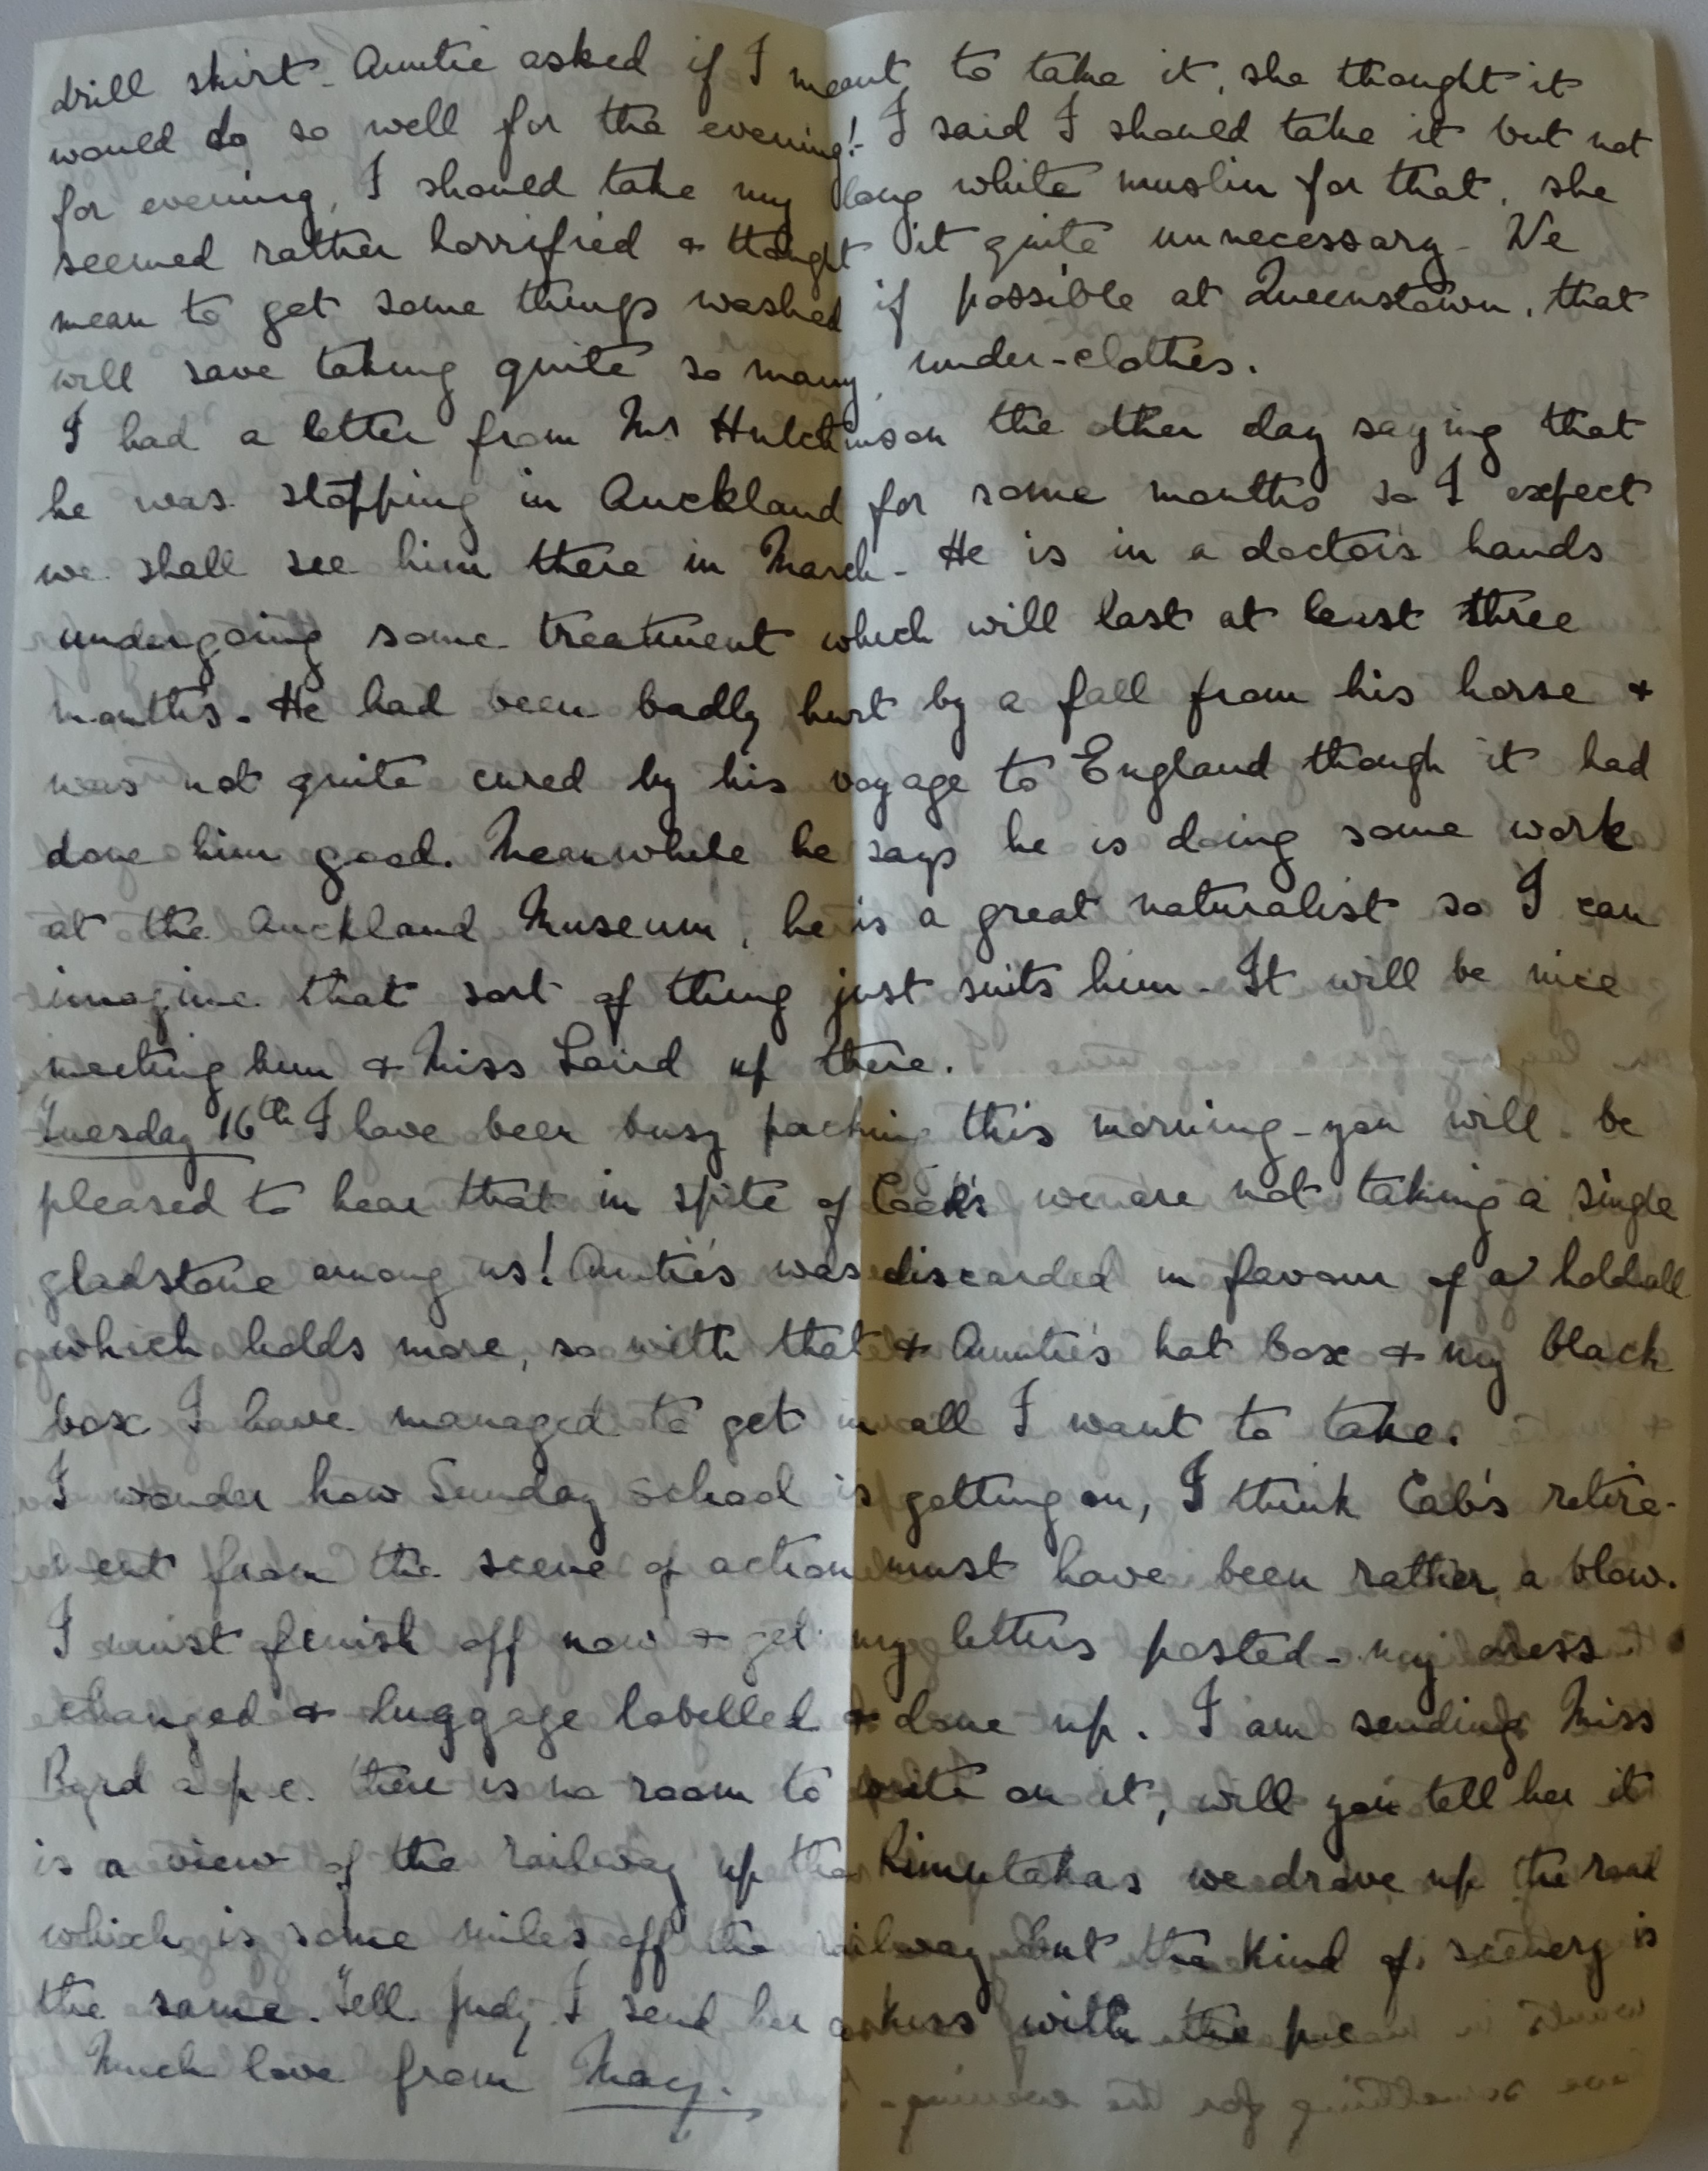 drill skirt - Auntie asked if I meant to take it, she thought it
would do so well for the evening!- I said I should take it but not
for evening, I should take my long white muslin for that, she
seemed rather horrified & thought it quite unnecessary - We
mean to get some things washed if possible at Queenstown, that
will save taking quite so many under-clothes.
I had a letter from Mr Hutchinson the other day saying that
he was stopping in Auckland for some months so I expect
we shall see him there in March - He is in a doctor's hands
undergoing some treatment which will last at least three
months. He had been badly hurt by a fall from his horse &
was not quite cured by his voyage to England though it had
done him good. Meanwhile he says he is doing some work
at the Auckland Museum, he is a great naturalist so I can
imagine that sort of thing just suits him - It will be nice
meeting him & Miss Laird up there.
Tuesday 16th I have been busy packing this morning - you will be
pleased to hear that in spite of Cook's we are not taking a single
gladstone among us! Auntie's was discarded in favour of a holdall
which holds more, so with that & Auntie's hat box & my black
box I have managed to get in all I want to take.
I wonder how Sunday School is getting on, I think Cab's retire-
ment from the scene of action must have been rather a blow.
I must finish off now & get my letters posted - my dress
changed & luggage labelled & done up. I am sending Miss
Byrd a p.c. there is no room to write on it, will you tell her it
is a view of the railway up the Rimutakas we drove up the road
which is some miles off the railway but the kind of scenery is
the same. Tell Judy I send her a kiss with the pc
Much love from May.